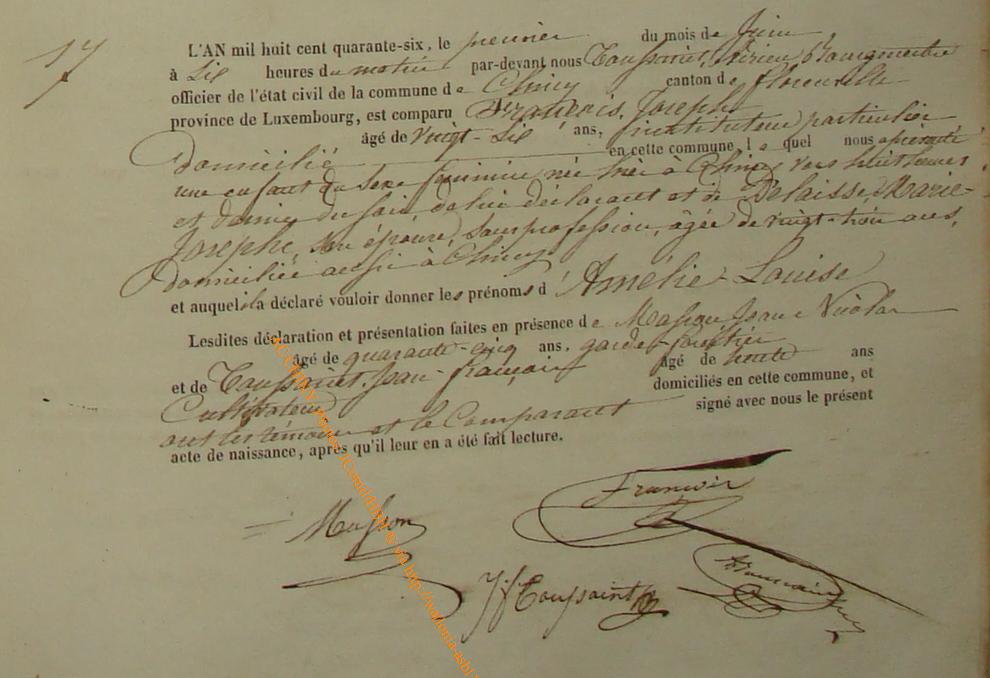 17
L'AN mil huit cent quarante-six, le premier du mois de Juin
à Six heures du matin par-devant nous Toussaint, Bourgmestre
officier de l'état civil de la commune de Chiny canton de florenville
province de Luxembourg, est comparu François, Joseph
âgé de vingt-six ans, instituteur particulier
domicilié en cette commune, lequel nous a présenté
une enfant du sexe feminin née hier à Chiny vers huit heures
et demie du soir, de lui déclarant et de Delaisse, Marie-
Josephe, son épouse, sans profession, âgée de vingt-trois ans,
domiciliée aussi à Chiny
et auquel il a déclaré vouloir donner les prénoms d'Amélie Louise
Lesdites déclaration et présentation faites en présence de Masson Jean Nicolas
âgé de quarante-cinq ans, garde-forêstier
et de Toussaint, Jean-françois âgé de trente ans
Cultivateur domiciliés en cette commune, et
ont les témoins et le Comparant signé avec nous le présent
acte de naissance, après qu'il leur en a été fait lecture.
François
Masson
Jf Toussaint
Toussaint
http://walonia-asbl